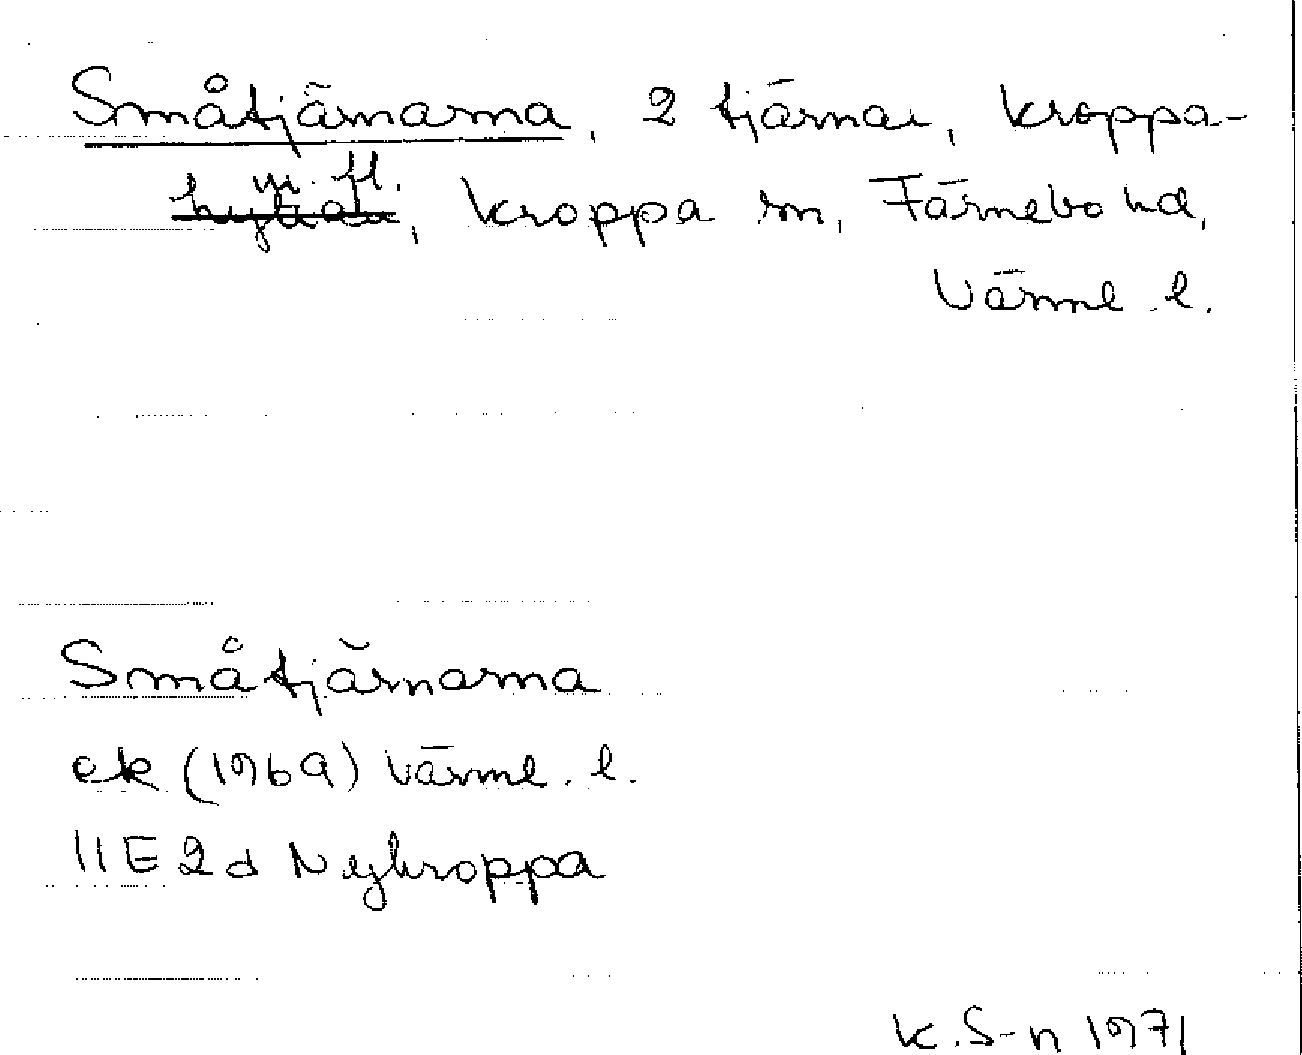 Småtjärnarna, 2 tjärnar, Kroppa-
m. fl.
hyttan, Kroppa sn, Färnebo hd,
Värml. l.
Småtjärnarna
ek (1969) Värml. l.
11E 2d Nykroppa
K. S-n 1971